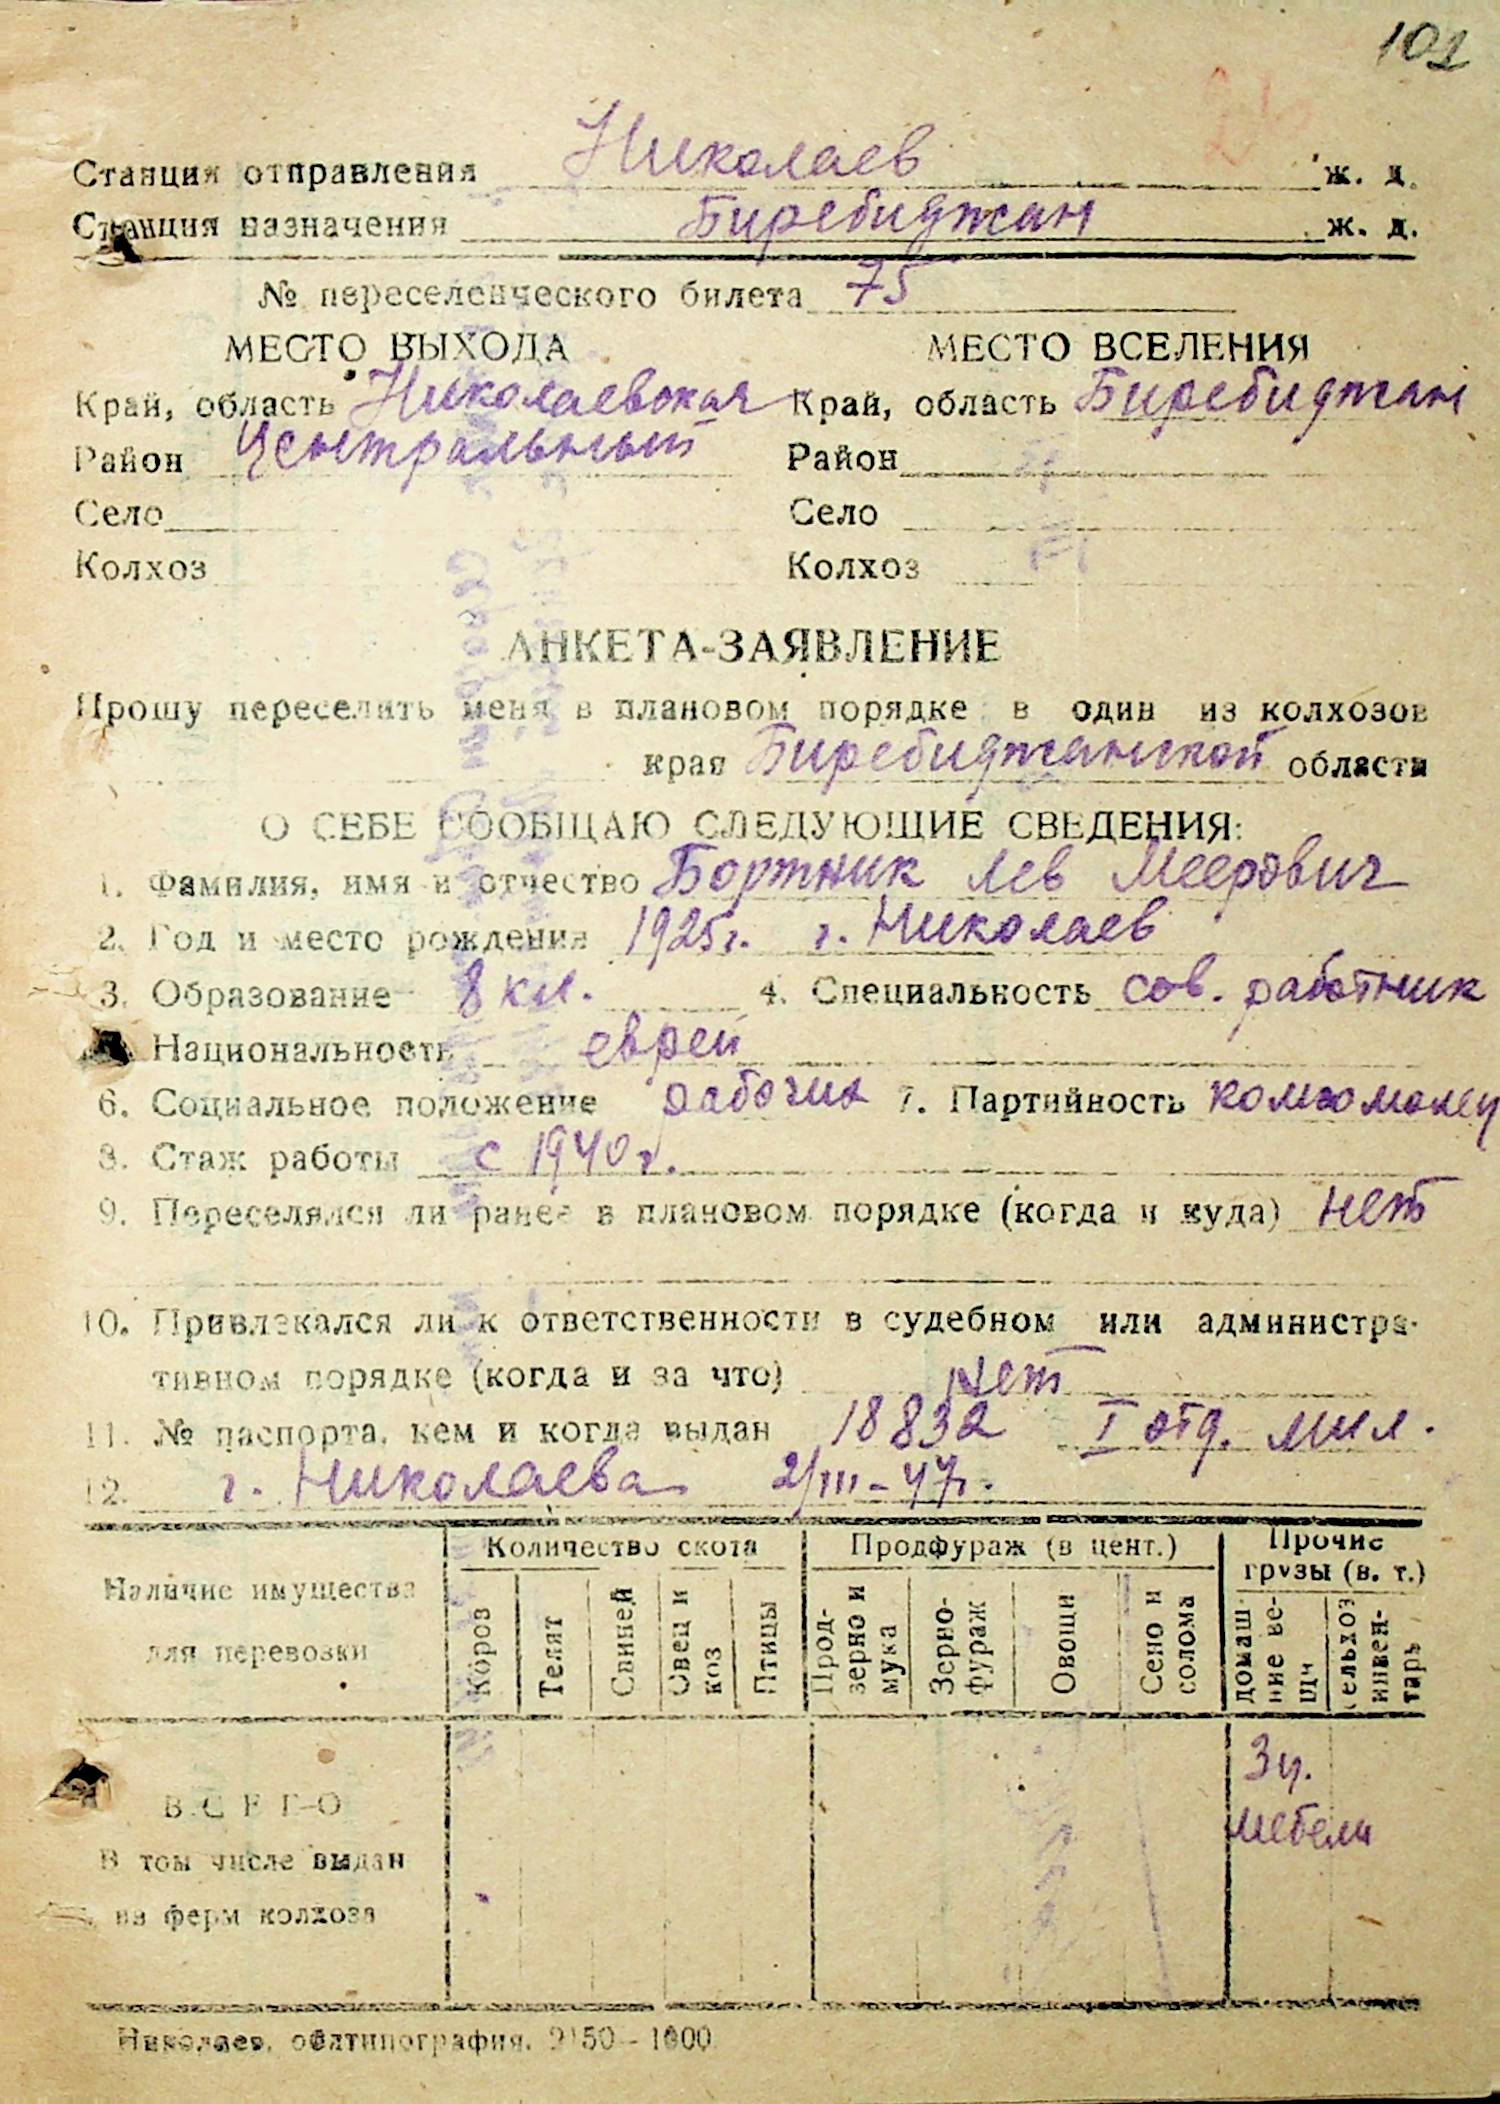 102
Станция отправления Николаев ж. д.
Станция назначения Биребиджан ж. д.
№ переселенческого билета 75
МЕСТО ВЫХОДА МЕСТО ВСЕЛЕНИЯ
Край, область Николаевская Край, область Биребиджан
Район Центральный Район
Село Село
Колхоз Колхоз
АНКЕТА-ЗАЯВЛЕНИЕ
Прошу переселить меня в плановом порядке в один из колхозов
края Биребиджанской области
О СЕБЕ СООБЩАЮ СЛЕДУЮЩИЕ СВЕДЕНИЯ:
1. Фамилия, имя и отчество Бортник Лев Меерович
2. Год и место рождения 1925г. г. Николаев
3. Образование 8 кл. 4. Специальность сов. работник
Национальность еврей
6. Социальное положение рабочий 7. Партийность комсомолец
8. Стаж работы с 1940 г.
9. Переселялся ли ранее в плановом порядке (когда и куда) нет
10. Привлекался ли к ответственности в судебном или администра-
тивном порядке (когда и за что) Нет
11. № паспорта, кем и когда выдан 18832 I отд. мил.
12. г. Николаева 2/III-47г.
Наличие имущества для перевозки
Количество скота Продфураж (в цент.) Прочие грузы (в. т.)
Коров Телят Свиней Овец и коз Птицы Прод-зерно и мука Зерно-фураж Овощи Сено и солома домаш-ние ве-щи сельхоз инвен-тарь
ВСЕГО 3 ц. мебели
В том числе выдан
из ферм колхоза
Николаев, облтипография. 2150—1000